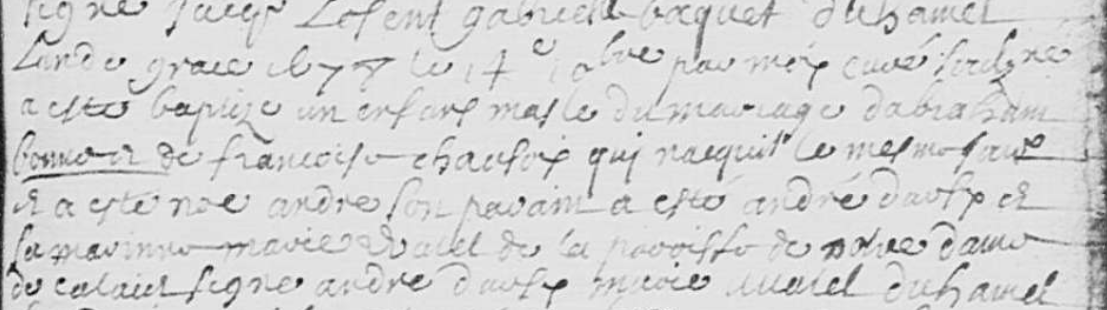 signe Jacq Losent gabriell baquet duhamel
Lan de grace le 14e 10bre par moy curé soubsne
a esté baptize un enfant masle du mariage dabraham
bonnet et de francoise chaufoy qui nacquit le mesme jour
et a esté nõe andre son parain a esté andré et
sa marinne marie de la paroisse de notre dame
de calais signe andre marie duhamel